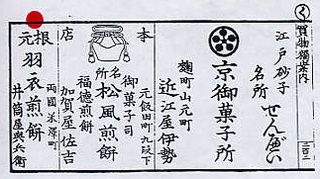 買物獨案内
江戸砂子
名所
せんべい
京御菓子所
麹町山元町
近江屋伊勢
本
店
元飯田町九段下
御菓子司
名所
松風煎餅
福德煎餅
加賀屋佐吉
根元
羽衣煎餅
兩國米澤町
井筒屋與兵衛